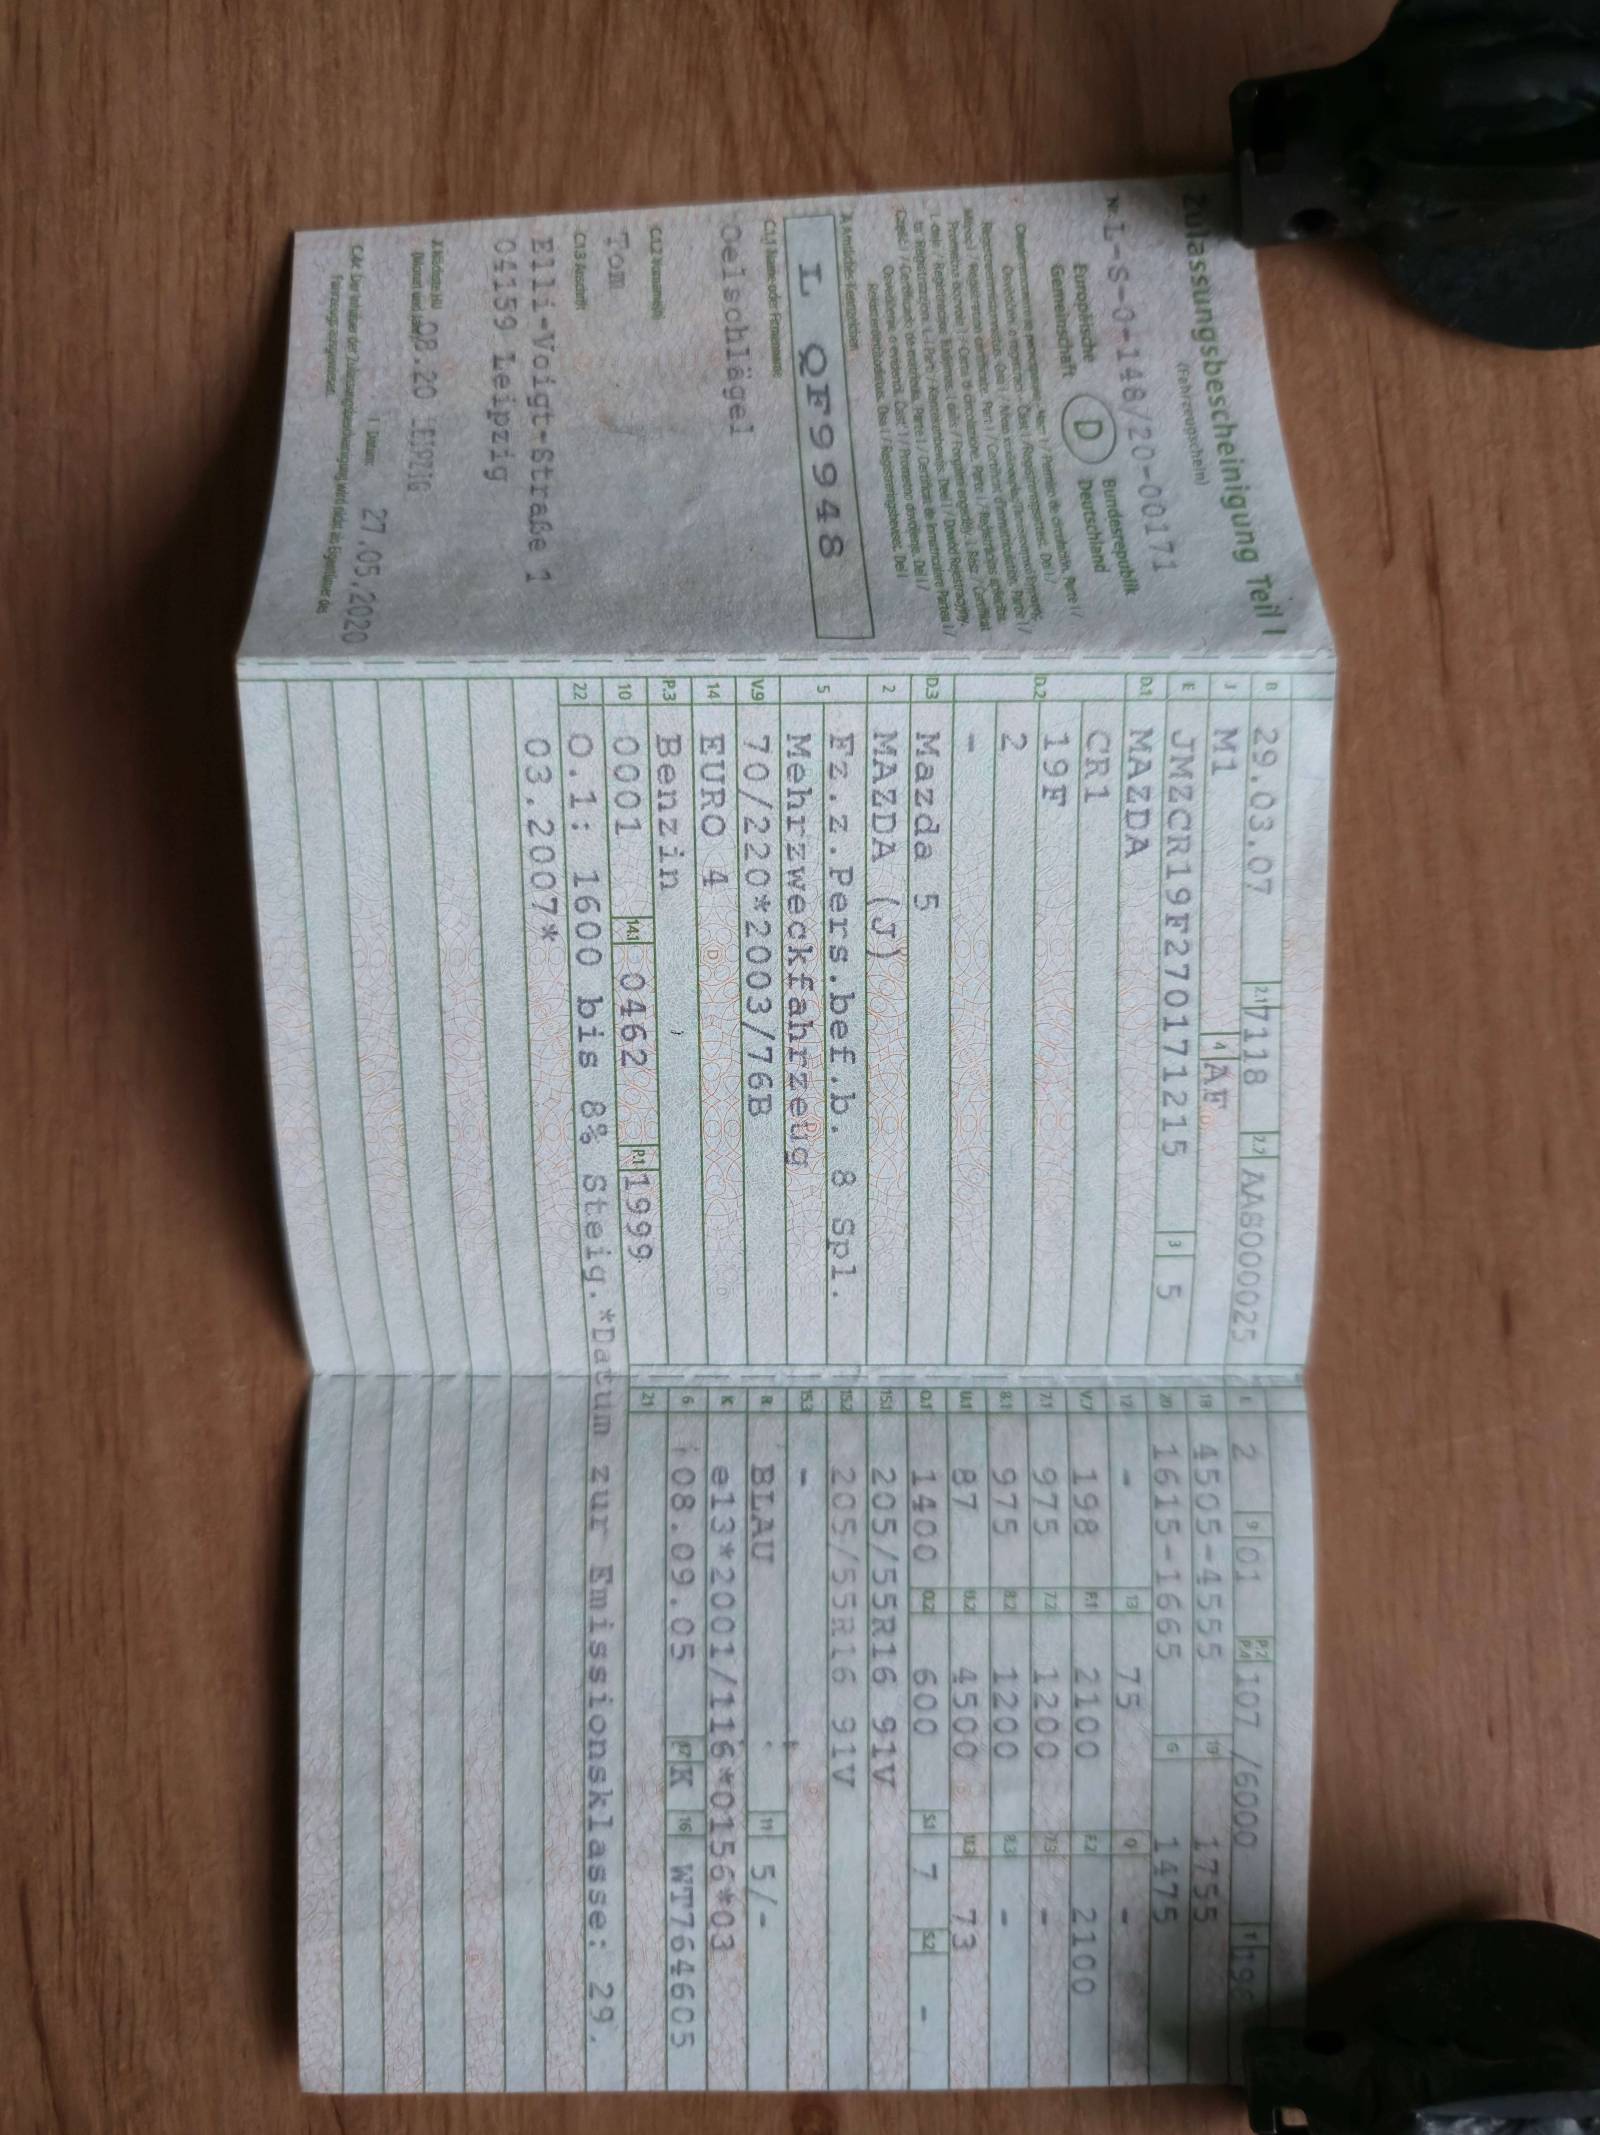 Zulassungsbescheinigung Teil I
(Fahrzeugschein)
Nr. L-S-0-148/20-00171
Europäische Gemeinschaft
D
Bundesrepublik Deutschland
A Amtliches Kennzeichen
L QF9948
C.1.1 Name oder Firmenname
Oelschlägel
C.1.2 Vorname(n)
Tom
C.1.3 Anschrift
Elli-Voigt-Straße 1
04159 Leipzig
08.20 LEIPZIG
I Datum: 27.05.2020
C.4c Der Inhaber der Zulassungsbescheinigung wird nicht als Eigentümer des
Fahrzeugs ausgewiesen.
B 29.03.07 2.1 7118 2.2 AAB000025
J M1 4 AF
E JMZCR19F270171215 3 5
D.1 MAZDA
CR1
D.2 19F
2
-
D.3 Mazda 5
2 MAZDA (J)
5 Fz.z.Pers.bef.b. 8 Spl.
Mehrzweckfahrzeug
V.9 70/220*2003/76B
14 EURO 4
P.3 Benzin
10 0001 14.1 0462 P.1 1999
22 O.1: 1600 bis 8% Steig.*Datum zur Emissionsklasse: 29.
03.2007*
L 2 9 01 P.2 P.4 107 /6000 T 196
18 4505-4555 19 1755
20 1615-1665 G 1475
12 - 13 75 Q -
V.7 198 F.1 2100 F.2 2100
7.1 975 7.2 1200 7.3 -
8.1 975 8.2 1200 8.3 -
U.1 87 U.2 4500 U.3 73
O.1 1400 O.2 600 S.1 7 S.2 -
15.1 205/55R16 91V
15.2 205/55R16 91V
15.3 -
R BLAU 11 5/-
K e13*2001/116*0156*03
6 08.09.05 17 K 16 WT764605
21